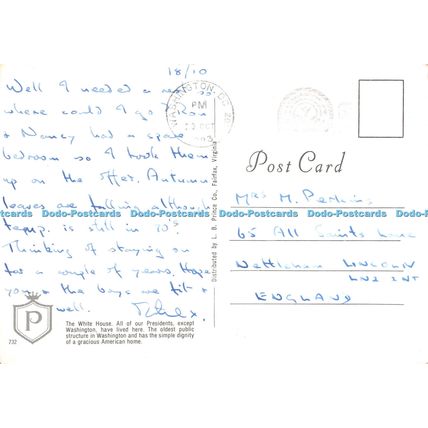 18/10
Well I needed a rest so
where could I go? Ron
& Nancy had a spare
bedroom so I took them
up on the offer. Autumn
leaves are falling although
temp. is still in 70's
Thinking of staying on
for a couple of years. Hope
you & the boys are fit &
well.
WASHINGTON, DC
PM
OCT
Post Card
Mrs M. Perkins
65 All Saints Lane
Nettleham LINCOLN
LN2 2NT
ENGLAND
Distributed by L. B. Prince Co., Fairfax, Virginia
Dodo-Postcards Dodo-Postcards Dodo-Postcards Dodo-Postcards Dodo-Postcards
P
732
The White House. All of our Presidents, except
Washington, have lived here. The oldest public
structure in Washington and has the simple dignity
of a gracious American home.